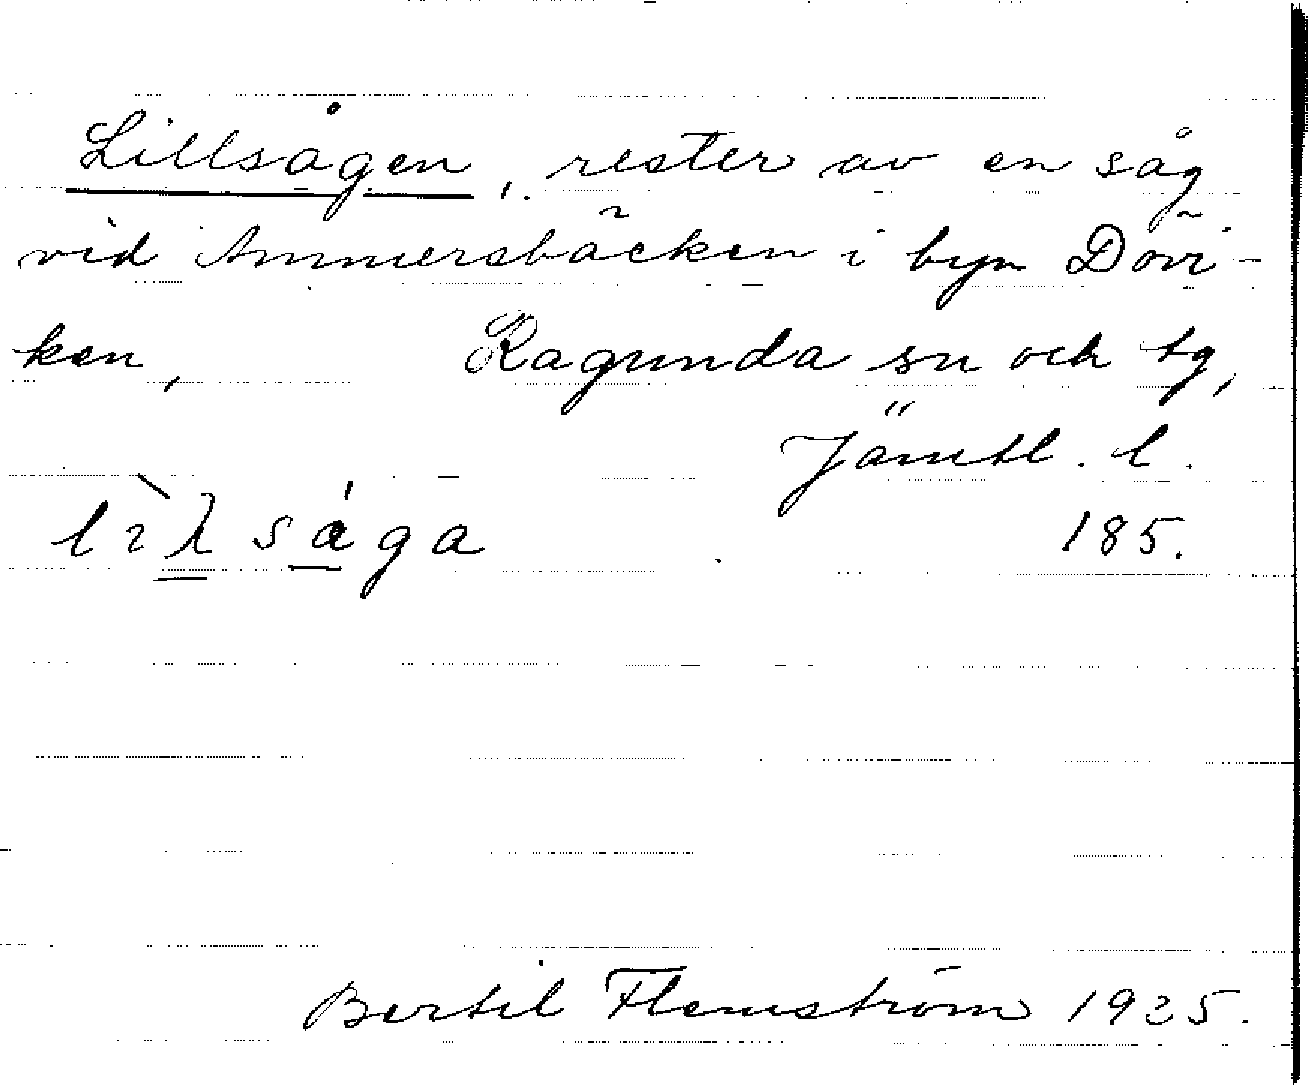 Lillsågen, rester av en såg
vid Ammersbäcken i byn Dövi-
ken, Ragunda sn och tg,
Jämtl. l.
lìλsága 185.
Bertil Flemström 1925.